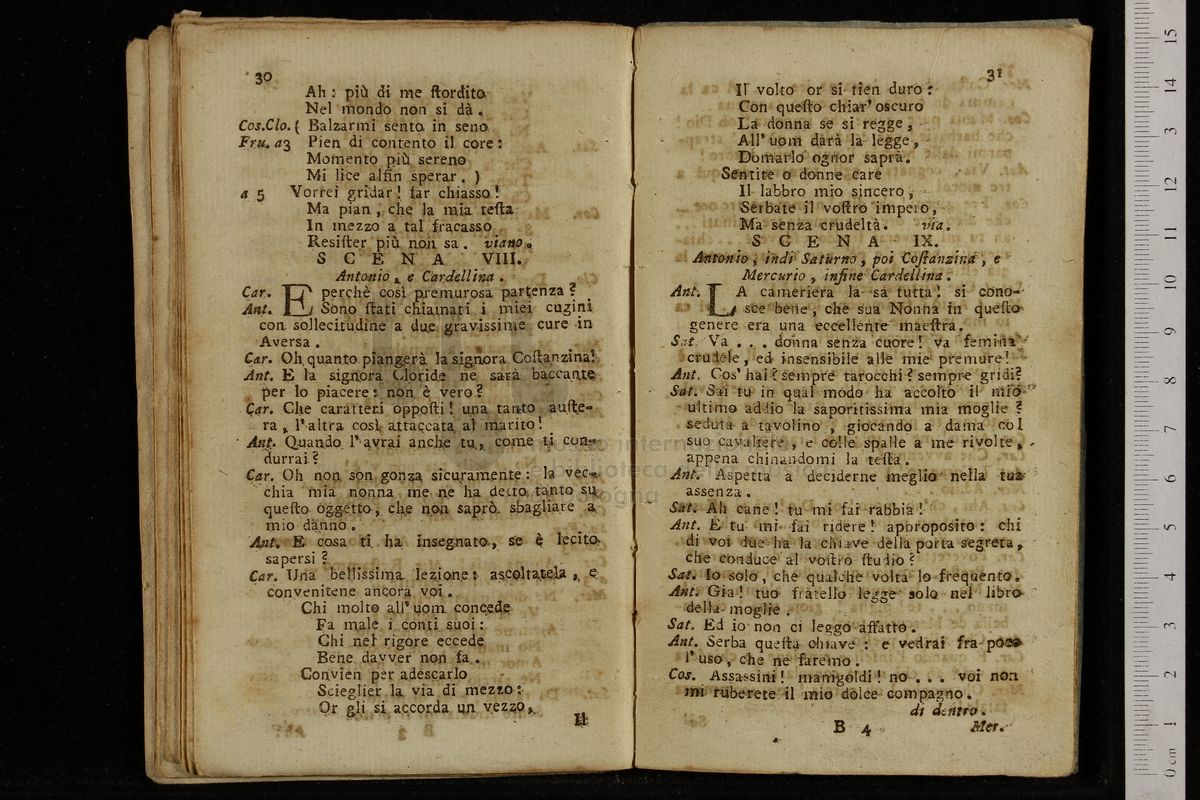 30
Ah: più di me ſtordito
Nel mondo non si dà.
Cos.Clo.( Balzarmi sento in seno
Fru. a3 Pien di contento il core:
Momento più sereno
Mi lice alfin sperar. )
a 5 Vorrei gridar! far chiasso!
Ma pian, che la mia teſta
In mezzo a tal fracasso
Resiſter più non sa. viano.
SCENA VIII.
Antonio, e Cardellina.
Car. E perchè così premurosa partenza?
Ant. Sono ſtati chiamati i miei cugini
con sollecitudine a due gravissime cure in
Aversa.
Car. Oh quanto piangerà la signora Coſtanzina!
Ant. E la signora Cloride ne sarà baccante
per lo piacere: non è vero?
Car. Che caratteri oppoſti! una tanto auſte-
ra, l'altra così attaccata al marito!
Ant. Quando l'avrai anche tu, come ti con-
durrai?
Car. Oh non son gonza sicuramente: la vec-
chia mia nonna me ne ha detto tanto su
queſto oggetto, che non saprò sbagliare a
mio danno.
Ant. E cosa ti ha insegnato, se è lecito
sapersi?
Car. Una bellissima lezione: ascoltatela, e
convenitene ancora voi.
Chi molto all'uom concede
Fa male i conti suoi:
Chi nel rigore eccede
Bene davver non fa.
Convien per adescarlo
Scieglier la via di mezzo:
Or gli si accorda un vezzo,
Il
31
Il volto or si tien duro:
Con queſto chiar'oscuro
La donna se si regge,
All'uom darà la legge,
Domarlo ognor saprà.
Sentite o donne care
Il labbro mio sincero,
Serbate il voſtro impero,
Ma senza crudeltà. via.
SCENA IX.
Antonio, indi Saturno, poi Coſtanzina, e
Mercurio, infine Cardellina.
Ant. LA cameriera la sà tutta! si cono-
sce bene, che sua Nonna in queſto
genere era una eccellente maeſtra.
Sat. Va ... donna senza cuore! va femina
crudele, ed insensibile alle mie premure!
Ant. Cos'hai? sempre tarocchi? sempre gridi?
Sat. Sai tu in qual modo ha accolto il mio
ultimo addio la saporitissima mia moglie?
seduta a tavolino, giocando a dama col
suo cavaliere, e colle spalle a me rivolte,
appena chinandomi la teſta.
Ant. Aspetta a deciderne meglio nella tua
assenza.
Sat. Ah cane! tu mi fai rabbia!
Ant. E tu mi fai ridere! apprroposito: chi
di voi due ha la chiave della porta segreta,
che conduce al voſtro ſtudio?
Sat. Io solo, che qualche volta lo frequento.
Ant. Già! tuo fratello legge solo nel libro
della moglie.
Sat. Ed io non ci leggo affatto.
Ant. Serba queſta chiave: e vedrai fra poco
l'uso, che ne faremo.
Cos. Assassini! manigoldi! no ... voi non
mi ruberete il mio dolce compagno.
di dentro.
B 4 Mer.